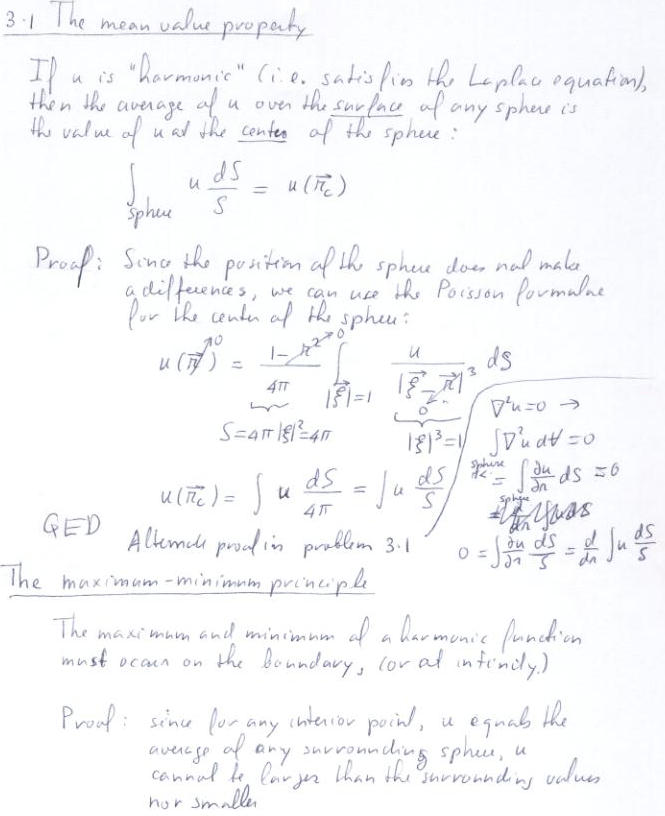 3.1 The mean value property
If u is "harmonic" (i.e. satisfies the Laplace equation),
then the average of u over the surface of any sphere is
the value of u at the center of the sphere :
∫_sphere u dS/S = u(r⃗_c)
Proof: Since the position of the sphere does not make
a differences, we can use the Poisson formulae
for the center of the sphere:
u(r⃗)→0 = (1 - r²→0)/4π ∫_|ξ⃗|=1 u/|ξ⃗ - r⃗|³ dS
S=4π|ξ|²=4π
|ξ|³=1
u(r⃗_c) = ∫ u dS/4π = ∫ u dS/S
QED
Alternate proof in problem 3.1
∇²u=0 →
∫_sphere ∇²u dV = 0
= ∫_sphere ∂u/∂r dS = 0
0 = ∫ ∂u/∂r dS/S = d/dr ∫ u dS/S
The maximum-minimum principle
The maximum and minimum of a harmonic function
must occur on the boundary, (or at infinity.)
Proof : since for any interior point, u equals the
average of any surrounding sphere, u
cannot be larger than the surrounding values
nor smaller